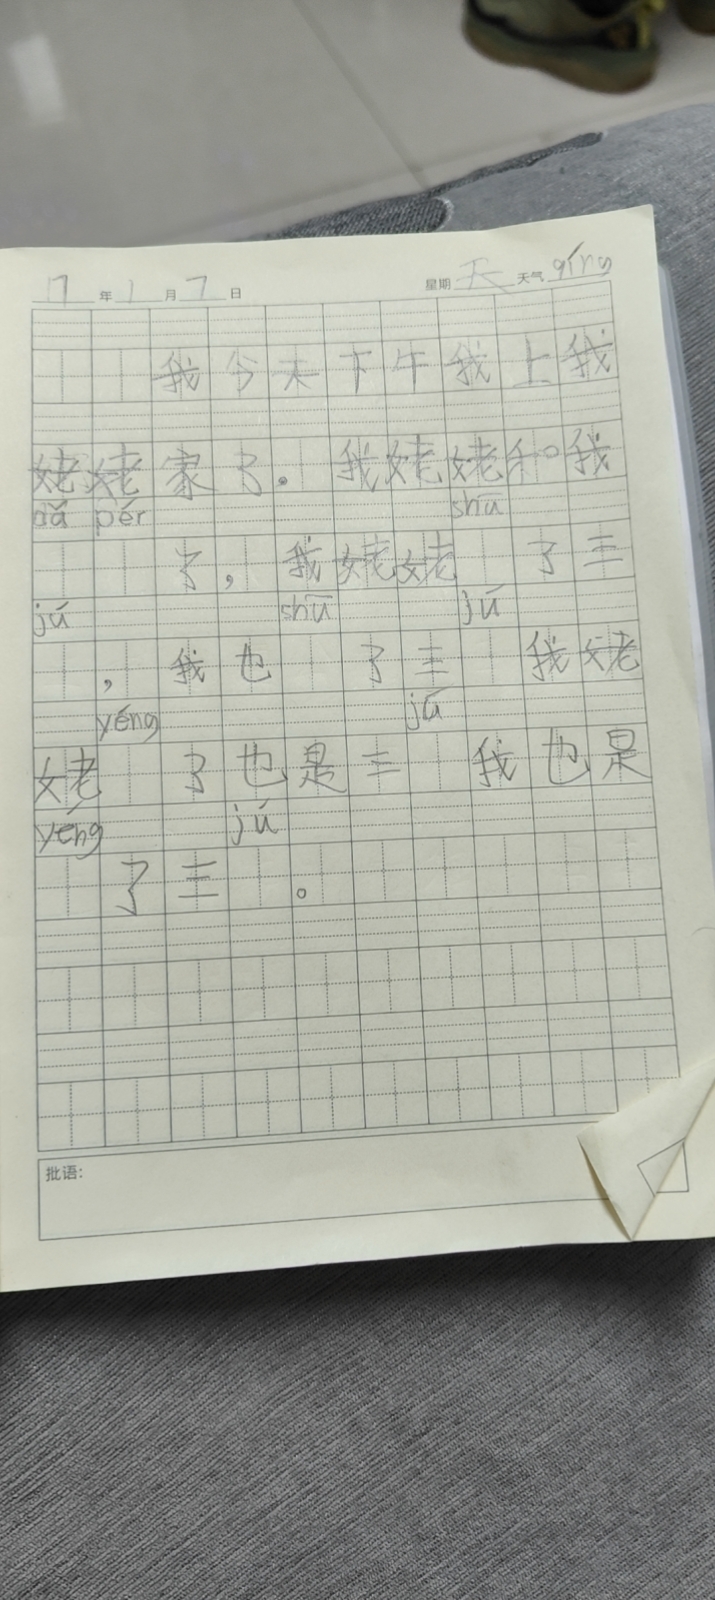 17年1月7日 星期天 天气qíng
我今天下午我上我
姥姥家了。我姥姥和我
dǎ pér shū
了，我姥姥 了三
jú shū jú
，我也 了三 我姥
yéng jú
姥 了也是三 我也是
yéng jú
了三 。
批语：